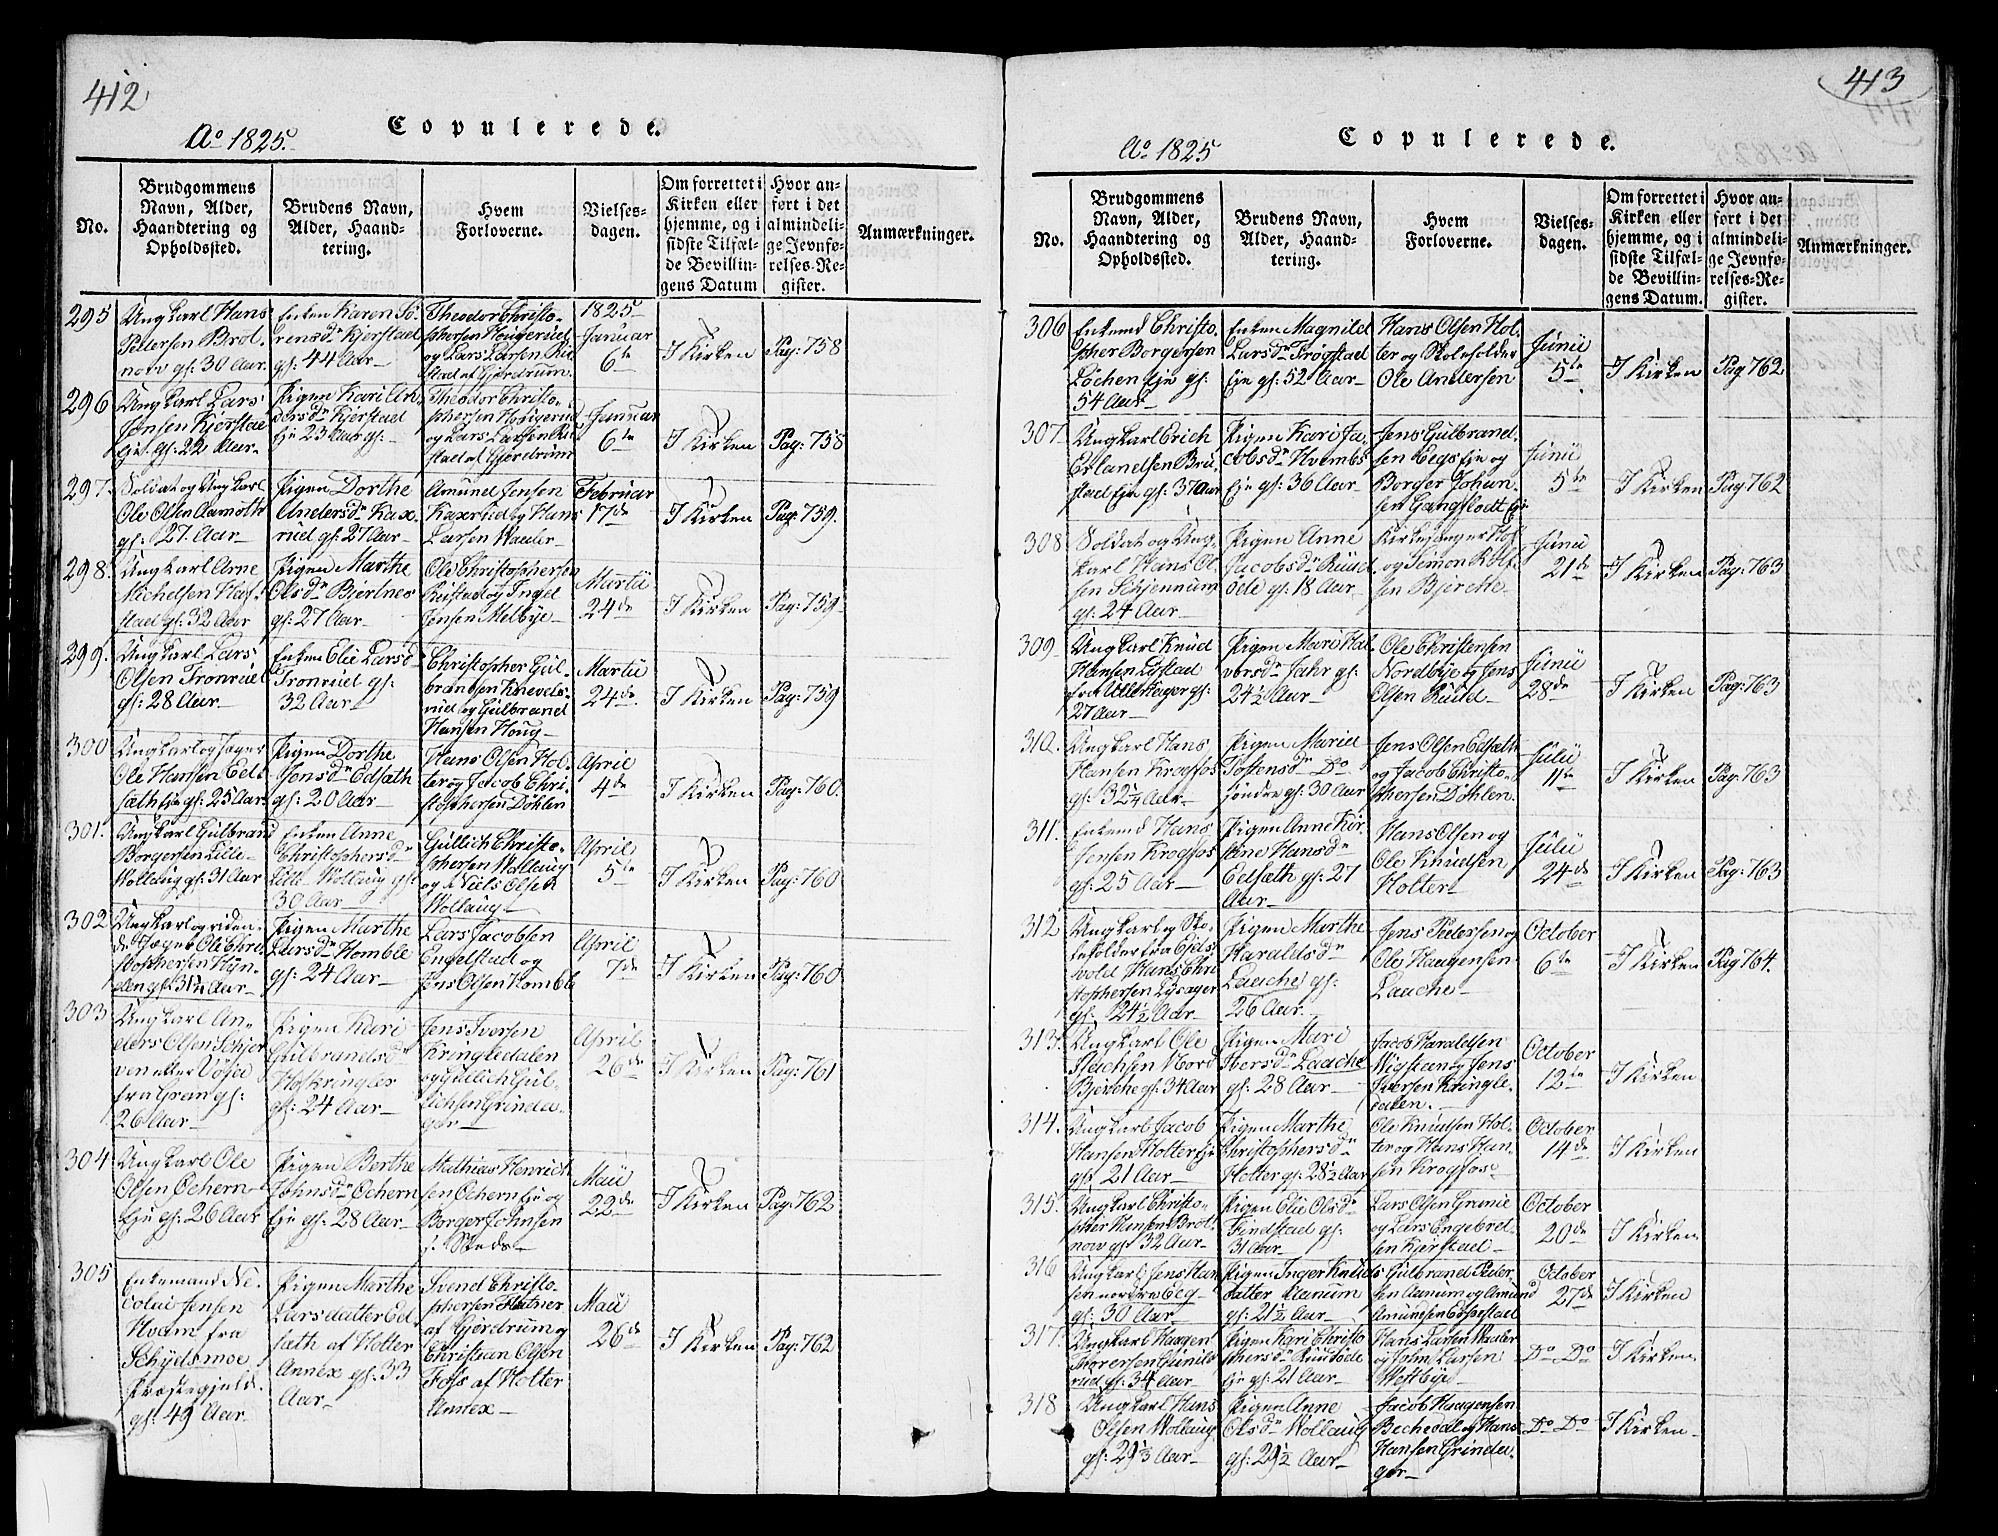 412
Aº 1825.
Copulerede.
No.
Brudgommens Navn, Alder, Haandtering og Opholdssted.
Brudens Navn, Alder, Haandtering.
Hvem Forloverne.
Vielsesdagen.
Om forrettet i Kirken eller hjemme, og i sidste Tilfælde Bevillingens Datum
Hvor anført i det almindelige Jevnførelses-Register.
Anmærkninger.
295
Ungkarl Hans
Pedersen Brol-
now gl: 30 Aar.
Enken Karen Sö-
rensdr Kjerstad
gl: 44 Aar
Theodor Christo-
phersen Hougerud
og Lars Larsen Ru-
stad af Gjerdrum.
1825
Januar
6te
I Kirken
Pag: 758
296
Ungkarl Lars
Jonsen Kjerstad
Eje gl: 22 Aar.
Pigen Kari An-
dersdr Kjerstad
Eje 23 Aar gl:
Theodor Christo-
phersen Hougerud
og Lars Larsen Ru-
stad af Gjerdrum
Januar
6te
I Kirken
Pag: 758
297.
Soldat og Ungkarl
Ole Olsen Aamoth
gl: 27. Aar
Pigen Dorthe
Andersdr Kaxe-
rud gl: 27 Aar
Amund Jensen
Kaxerud og Hans
Larsen Wauler
Februar
17de
I Kirken
Pag: 759.
298.
Ungkarl Arne
Michelsen Haf-
stad gl: 32 Aar
Pigen Marthe
Olsdr Bjertnes
gl: 27 Aar
Ole Christophersen
Rustad og Ingel
Jensen Melbye
Martii
24de
I Kirken
Pag: 759
299.
Ungkarl Lars
Olsen Tronrud
gl: 28 Aar
Enken Elie Larsd
Tronrud gl:
32 Aar
Christopher Gul-
brandsen Knevels-
rud og Gulbrand
Hansen Houg
Martii
24de
I Kirken
Pag: 759
300
Ungkarl og Jæger
Ole Hansen Eds-
æth Eje gl: 25 Aar
Pigen Dorthe
Jensdr Edsæth
gl: 20 Aar
Hans Olsen Hol-
ter og Jacob Chri-
stophersen Döhlen
April
4de
I Kirken
Pag: 760.
301.
Ungkarl Gulbrand
Borgersen Lille-
Wollaug gl: 31 Aar
Enken Anne
Christophersdr
Lille Wollaug gl:
30 Aar
Gullich Christo-
phersen Wollaug
og Niels Olsen
Wollaug
April
5te
I Kirken
Pag: 760
302
Ungkarl og riden-
de Jæger Ole Chri-
stophersen Hyn-
Pigen Marthe
Larsdr Homble
gl: 24 Aar
Lars Jacobsen
Engelstad og
Jens Olsen Homble
April
7de
I Kirken
Pag: 760
303
Ungkarl An-
ders Olsen Schjer
ven eller Vöjen
fra Gran gl:
26 Aar
Pigen Kari
Gulbrandsdr
Holkringler
gl: 24 Aar
Jens Iversen
Kringledalen
og Gullich Gul-
lichsen Grinda-
ger
April
26de
I Kirken
Pag: 761
304
Ungkarl Ole
Olsen Ochern
Eje gl: 26 Aar
Pigen Berthe
Johnsdr Ochern
Eje gl: 28 Aar
Mathias Henrich
sen Ochern Eje og
Borger Johnsen
Maii
22de
I Kirken
Pag: 762
305
Enkemand Ni-
colai Jensen
Hvam fra
Schydsmoe
Præstegjeld.
gl: 49 Aar.
Pigen Marthe
Larsdatter Ed-
sæth af Holter
Annex gl: 33
Aar
Svend Christo-
phersen
af Gjerdrum og
Christian Olsen
Foss af Holter
Annex
Maii
26de
I Kirken
Pag: 762
413
Aº 1825
Copulerede.
No.
Brudgommens Navn, Alder, Haandtering og Opholdssted.
Brudens Navn, Alder, Haandtering.
Hvem Forloverne.
Vielsesdagen.
Om forrettet i Kirken eller hjemme, og i sidste Tilfælde Bevillingens Datum.
Hvor anført i det almindelige Jevnførelses-Register.
Anmærkninger.
306
Enkemd Christo-
pher Borgersen
Löchen Eje gl:
54 Aar
Enken Magnild
Larsdr Frogstad
Eje gl: 52 Aar
Hans Olsen Hol-
ter og Skoleholder
Ole Andersen
Junii
5te
I Kirken
Pag 762
307
Ungkarl Erich
Erlandsen Bru-
stad Eje gl: 37 Aar
Pigen Kari Ja-
cobsdr Hvembs
Eje gl: 36 Aar
Jens Gulbrand-
sen Eegs Eje og
Borger Johan
sen Gangflodt Eje
Junii
5te
I Kirken
Pag 762
308
Soldat og Ung-
karl Hans Ol-
sen Schjennum
gl: 24 Aar
Pigen Anne
Jacobsdr Ruud
gl: 18 Aar
Kirkesanger Hof
og Simon Rolf-
sen Bjerche
Junii
21de
I Kirken
Pag: 763
309
Ungkarl Knud
Hansen Lystad
fra Ullensager gl:
27 Aar
Pigen Mari Hal
vorsdr Jahr gl:
24½ Aar
Ole Christensen
Nordbye og Jens
Olsen Ruud
Junii
28de
I Kirken
Pag: 763
310.
Ungkarl Hans
Hansen Krogfos
gl: 32¼ Aar
Pigen Marie
Tostensdr Do
söndre gl: 30 Aar
Jens Olsen Edsæth
og Jacob Christo-
phersen Döhlen.
Julii
11te
I Kirken
Pag: 763
311.
Enkemd Hans
Jensen Krogfos
gl: 25 Aar
Pigen Anne Kir-
stine Hansdr
Edsæth gl: 27
Aar
Hans Olsen og
Ole Knudsen
Holter
Julii
24de
I Kirken
Pag: 763
312
Ungkarl og Sko-
leholder fra Ejds
vold Hans Chri
stophersen Lysager
gl: 24½ Aar
Pigen Marthe
Haraldsdr
Laache gl:
26 Aar.
Jens Pedersen og
Ole Haagensen
Laache
October
6te
I Kirken
Pag 764.
313.
Ungkarl Ole
Isachsen Nord
Bjerche gl: 34 Aar
Pigen Mari
Iversdr Laache
gl: 28 Aar
Jacob Haraldsen
Wigstean og Jens
Iversen Kringle-
dalen.
October
12te
I Kirken
314.
Ungkarl Jacob
Hansen Holter Eje
gl: 21 Aar
Pigen Marthe
Christophersdr
Holter gl: 28½ Aar
Ole Knudsen Hol-
ter og Hans Han-
sen Krogfos
October
14de
I Kirken
315.
Ungkarl Christo-
pher Hansen Brol-
now gl: 32 Aar
Pigen Elie Olsdr
Findstad gl:
31 Aar
Lars Olsen Grønie
og Lars Engebret-
sen Kjerstad
October
20de
I Kirken
316
Ungkarl Jens Han
sen nordre Eeg
gl: 30 Aar
Pigen Inger Knuds
datter Aanum
gl: 21½ Aar
Gulbrand Peder-
sen Aanum og Amund
Amundsen
October
27de
I Kirken
317.
Ungkarl Haagen
Thoresen Gunild
rud gl: 34 Aar
Pigen Kari Christo
phersdr
Eje gl: 21 Aar
Hans Larsen Wauler
og John Larsen
Westbye
Do Do
I Kirken
318
Ungkarl Hans
Olsen Wollaug
gl: 29⅓ Aar
Pigen Anne
Olsdr Wollaug
gl: 29½ Aar
Jacob Haagensen
Bechedal og Hans
Hansen Grinda-
ger
Do Do
I Kirken